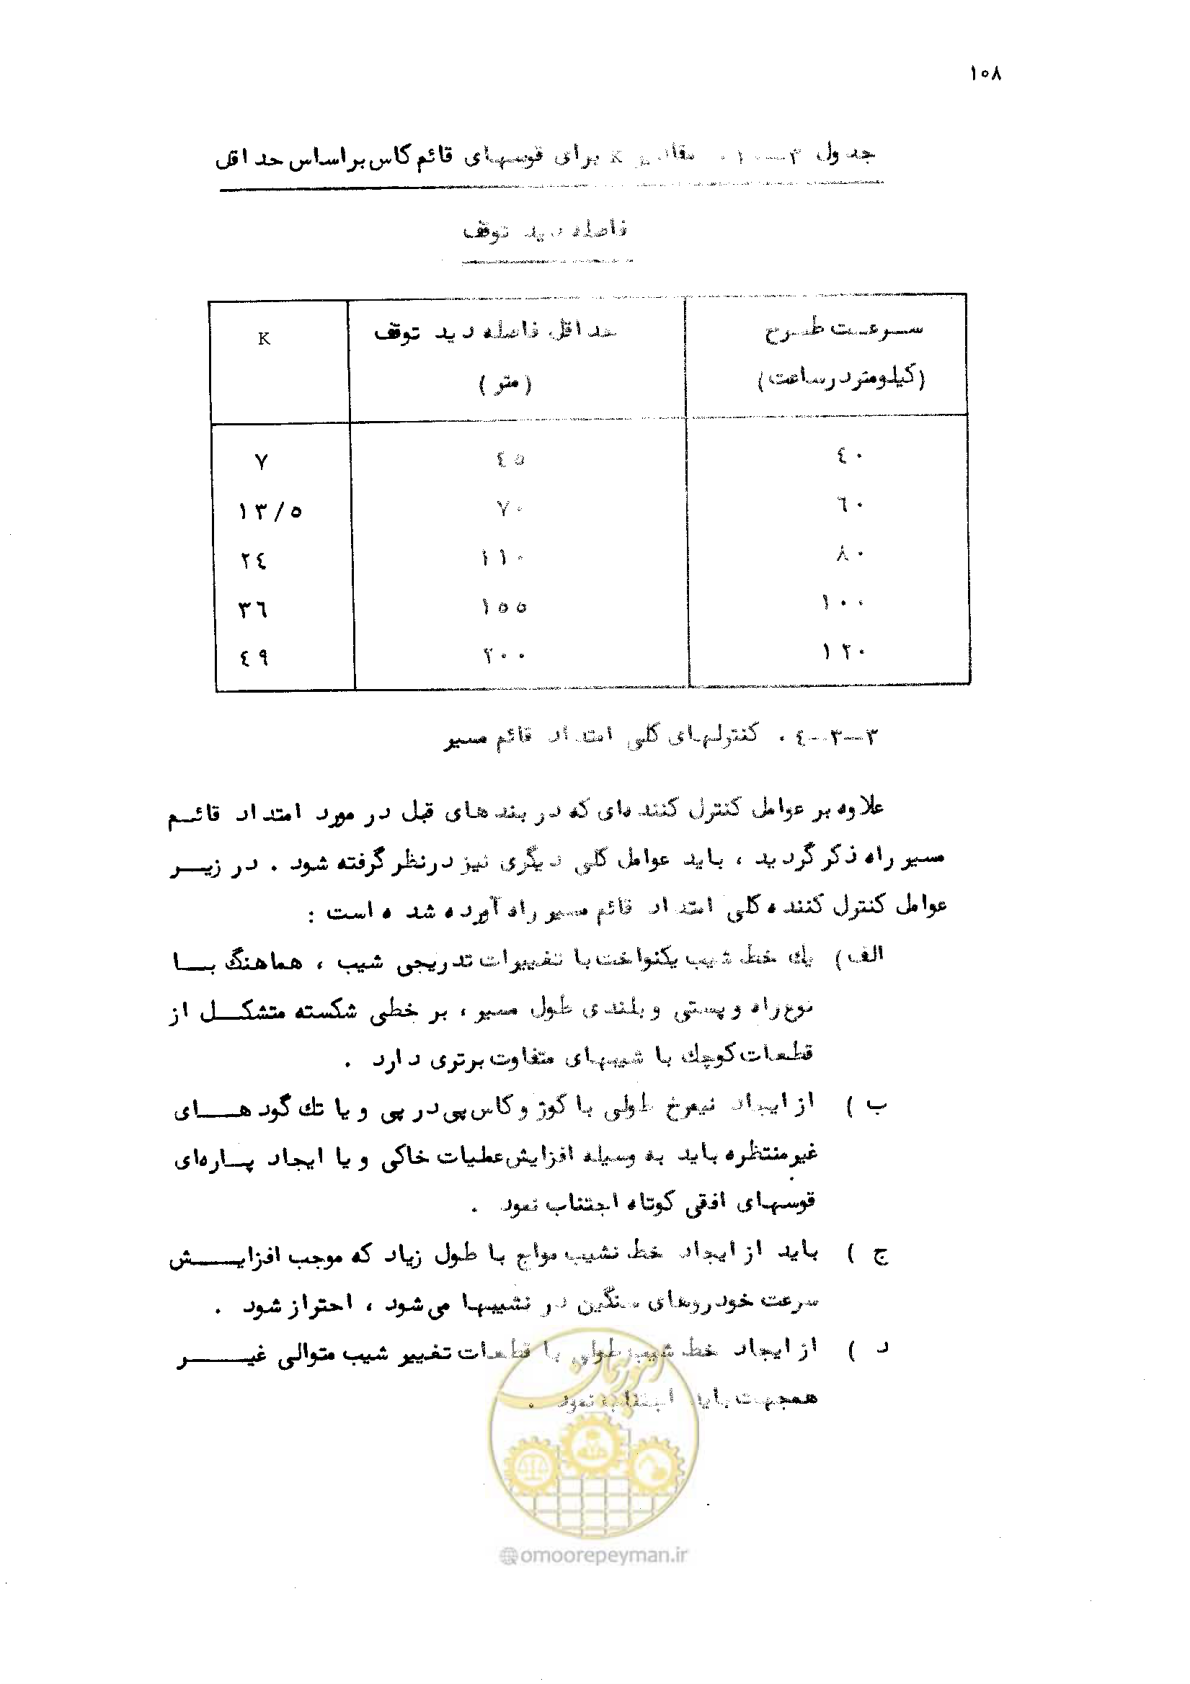 ۱۰۸
جدول ۳-۱۰. مقادیر K برای قوسهای قائم کاس براساس حداقل
فاصله دید توقف
سرعت طرح حداقل فاصله دید توقف K
(کیلومتر در ساعت) (متر)
٤۰ ٤۵ ۷
٦۰ ۷۰ ۱۳/۵
۸۰ ۱۱۰ ۲٤
۱۰۰ ۱۵۵ ۳٦
۱۲۰ ۲۰۰ ٤۹
۳-۳-٤. کنترلهای کلی امتداد قائم مسیر
علاوه بر عوامل کنترل کننده‌ای که در بندهای قبل در مورد امتداد قائم
مسیر راه ذکر گردید ، باید عوامل کلی دیگری نیز درنظر گرفته شود . در زیر
عوامل کنترل کننده کلی امتداد قائم مسیر راه آورده شده است :
الف) یک خط شیب یکنواخت با تغییرات تدریجی شیب ، هماهنگ با
نوع راه و پستی و بلندی طول مسیر ، بر خطی شکسته متشکل از
قطعات کوچک با شیبهای متفاوت برتری دارد .
ب ) از ایجاد نیمرخ طولی با کوژ و کاس پی در پی و یا تک گودهای
غیرمنتظره باید به وسیله افزایش عملیات خاکی و یا ایجاد پاره‌ای
قوسهای افقی کوتاه اجتناب نمود .
ج ) باید از ایجاد خط نشیب مواج با طول زیاد که موجب افزایش
سرعت خودروهای سنگین در نشیبها می‌شود ، احتراز شود .
د ) از ایجاد خط شیب طولی با قطعات تغییر شیب متوالی غیر
همجهت باید اجتناب نمود .
امور پیمان
@omoorepeyman.ir